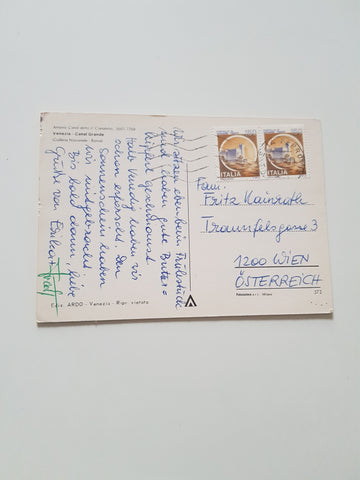 Antonio Canal detto il Canaletto, 1697-1768
Venezia - Canal Grande
Galleria Nazionale - Roma
Wir sitzen eben beim Frühstück
und haben gute Butter-
kipferl geschmaust.
Halb Venedig haben wir
schon erforscht. Den
Sonnenschein haben
wir mitgebracht.
Bis bald dann, liebe
Grüße von Erika +
ITALIA
ITALIA
Fam.
Fritz Mainrath
Traunfelsgasse 3
1200 WIEN
ÖSTERREICH
Ediz. ARDO - Venezia - Ripr. vietata
372